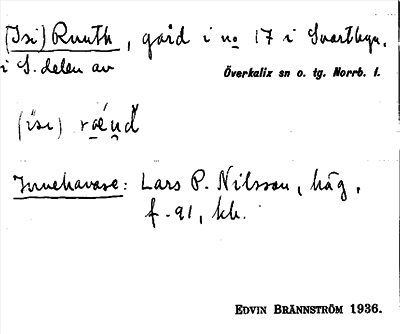 (Isi) Ruuth, gård i no 17 i Svartbyn,
i S. delen av
Överkalix sn o. tg. Norrb. l.
(isi)
Innehavare: Lars P. Nilsson, häg,
f. -91, kb.
EDVIN BRÄNNSTRÖM 1936.